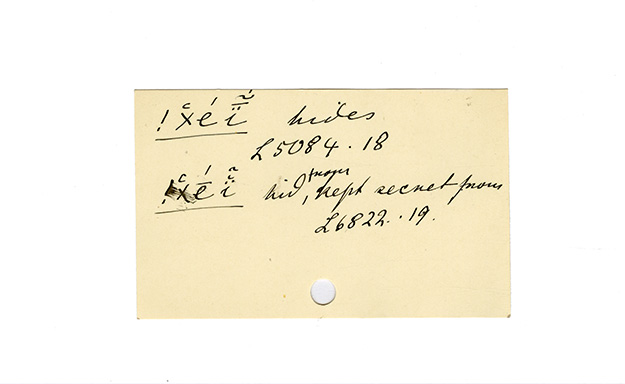 !x́éĩ hides
L5084.18
!x́éĩ hid, from kept secret from
L6822.19.